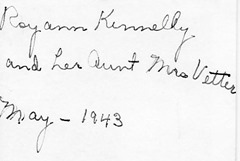 Roy ann Kennelly
and her Aunt Mrs Vetter
May - 1943